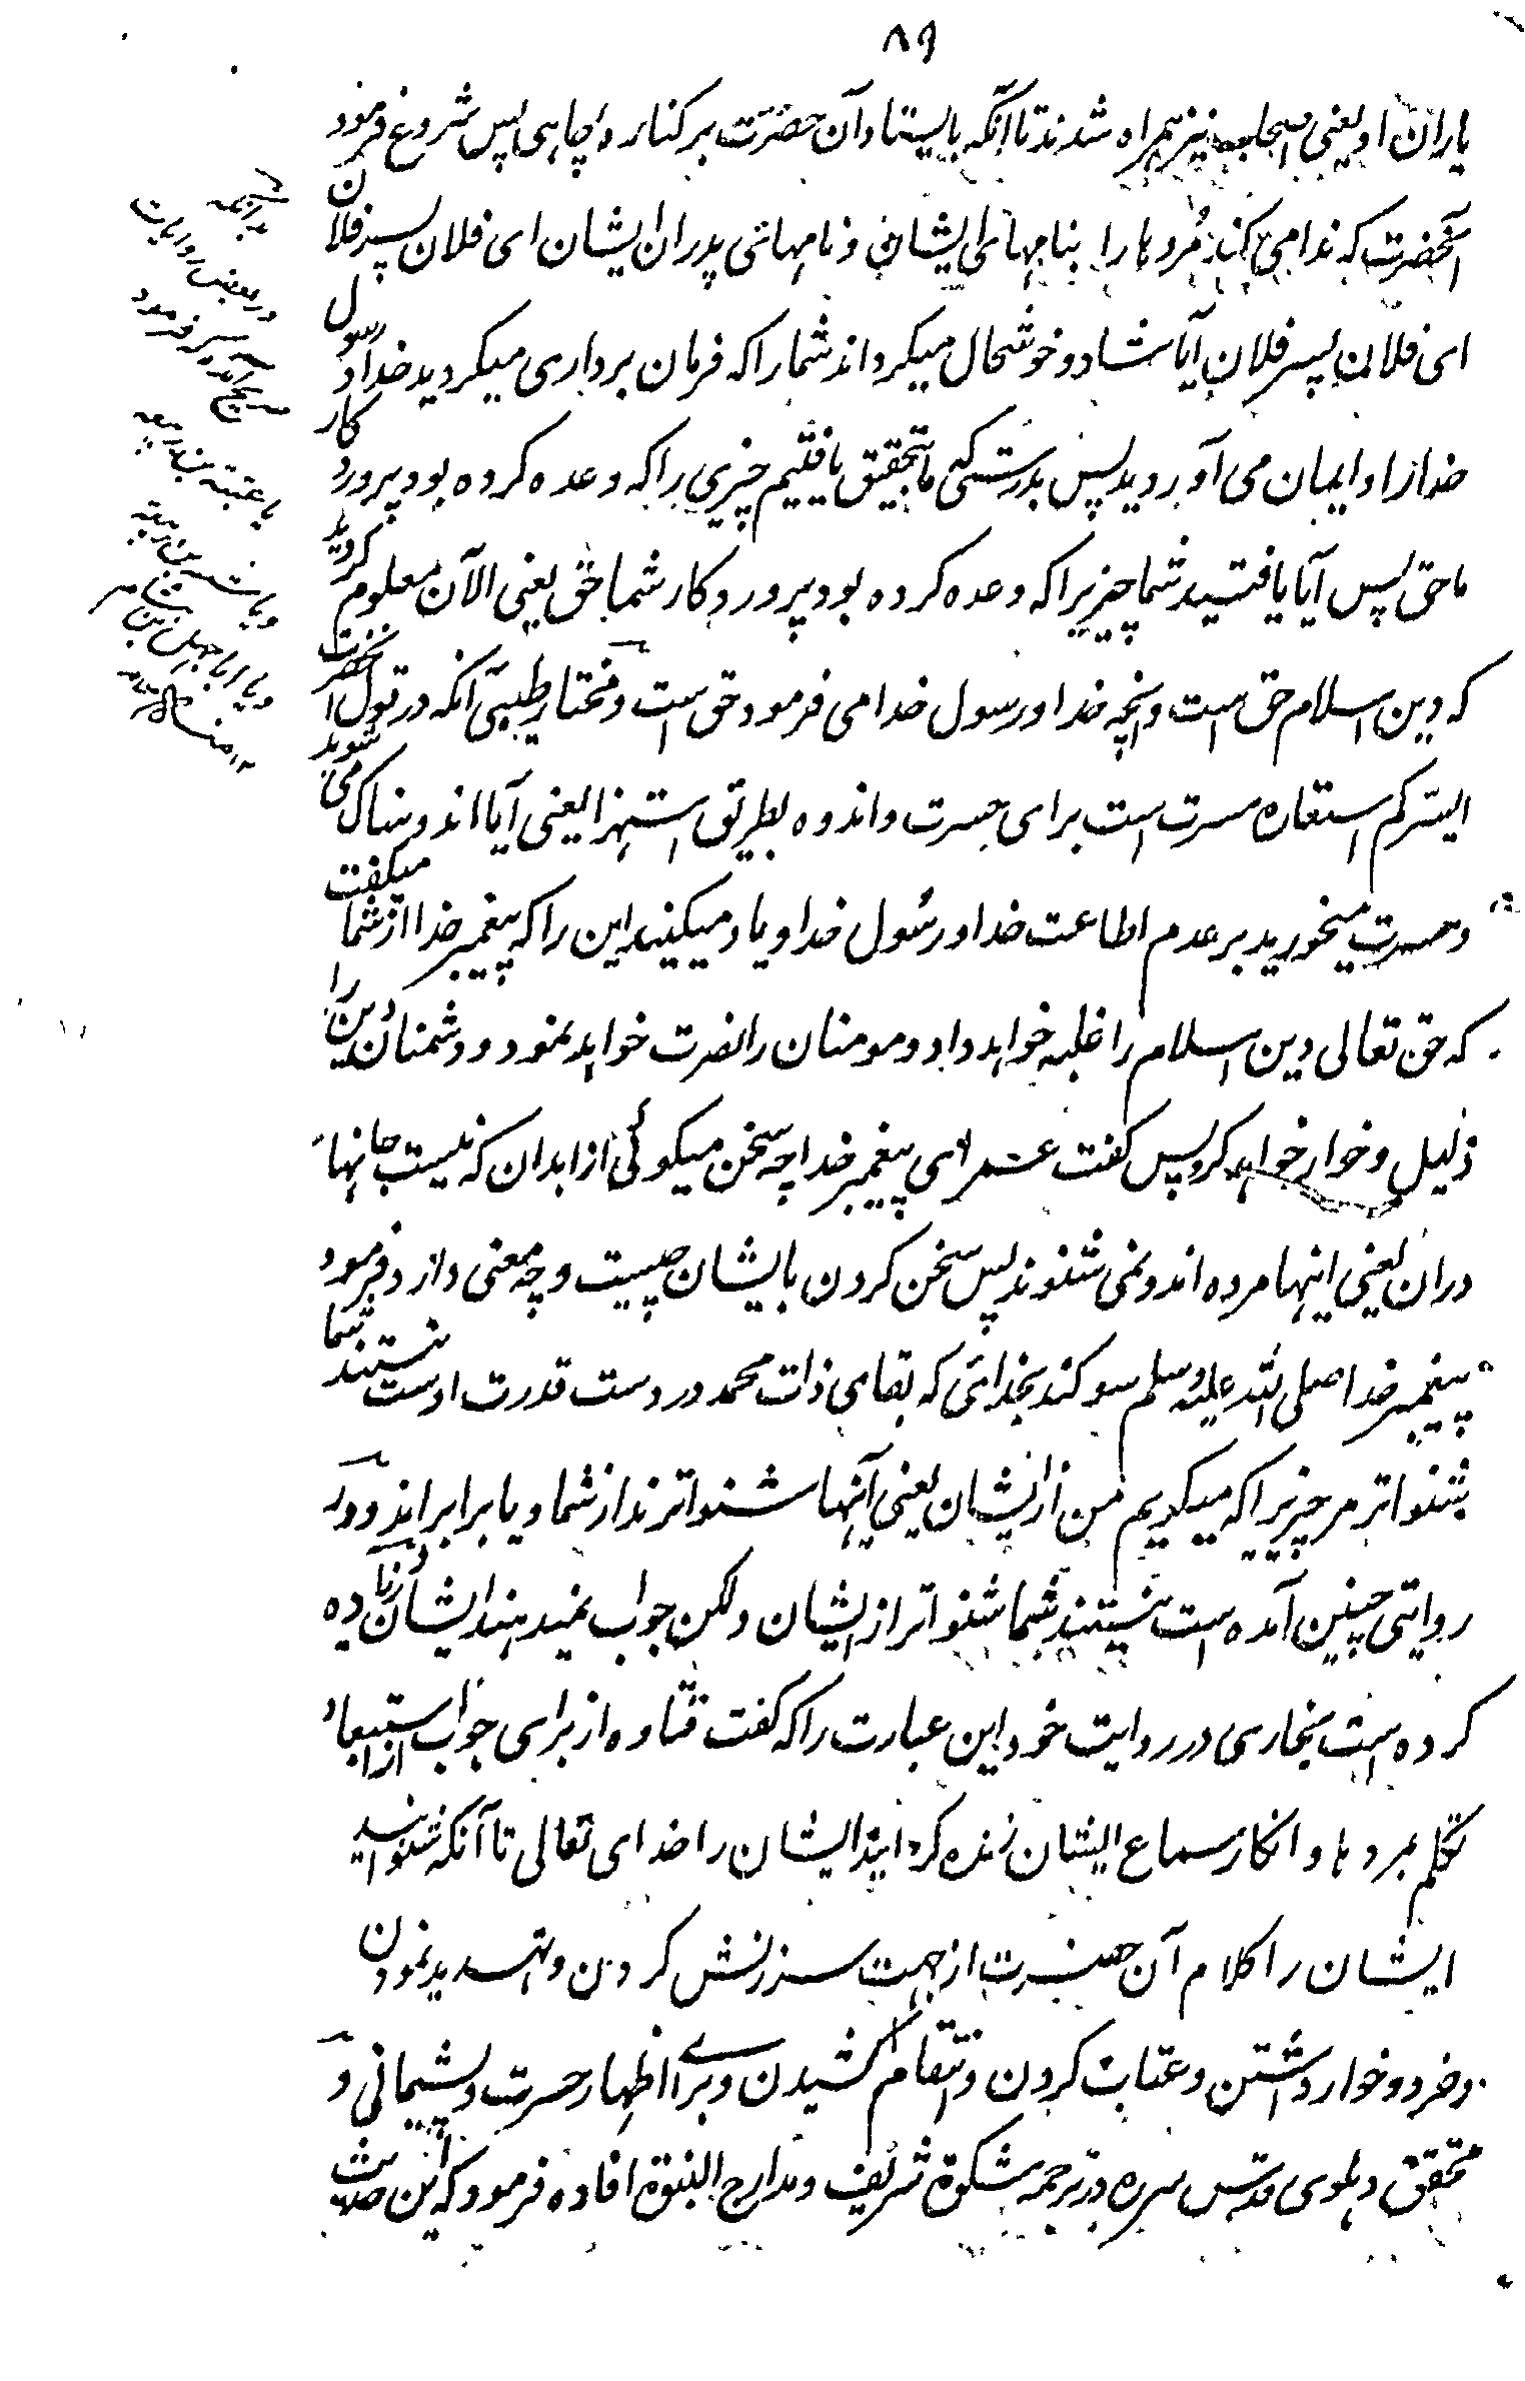 ۸۹
یاران او یعنی اصحاب نیز همراه شدند تا آنکه بایستاد آن حضرت بر کناره چاهی پس شروع فرمود
آنحضرت که ندا می کند مُردها را بنامهای ایشان و نامهائی پدران ایشان ای فلان پسر فلان
ای فلان پسر فلان آیا شاد و خوشحال میگرداند شما را که فرمان برداری میکردید خدا و رسول
خدا را و ایمان می آوردید پس بدرستی که ما بتحقیق یافتیم چیزی را که وعده کرده بود پروردگار
ما حق پس آیا یافتید شما چیزیرا که وعده کرده بود پروردگار شما حق یعنی الآن معلوم کردید
که دین اسلام حق است و انچه خدا و رسول خدا می فرمود حق است و مختار طیبی آنکه در قول آنحضرت
ایسرکم استعاره مسرت است برای حسرت و اندوه بطریق استهزا یعنی آیا اندوهناک می شوید
و حسرت میخورید بر عدم اطاعت خدا و رسُول خدا و یاد میکنید این را که پیغمبر خدا از شما میگفت
که حق تعالی دین اسلام را غلبه خواهد داد و مومنان را نصرت خواهد نمود و دشمنان دین را
ذلیل و خوار خواهد کرد پس گفت عمر ای پیغمبر خدا چه سخن میگوئی از ابدان که نیست جانها
دران یعنی اینها مرده اند و نمی شنوند پس سخن کردن بایشان چیست و چه معنی دارد فرمود
پیغمبر خدا صلی الله علیه وسلم سوگند بخدائی که بقای ذات محمد در دست قدرت اوست نیستند شما
شنواتر مر چیزیرا که میگویم من از ایشان یعنی آنها شنواترند از شما و یا برابر اند و در
روایتی چنین آمده است نیستند شما شنواتر از ایشان ولکن جواب نمیدهند ایشان و زیاده
کرده است بخاری در روایت خود این عبارت را که گفت قتاده از برای جواب از استبعاد
تکلم بمردها و انکار سماع ایشان زنده گردانید ایشان را خدای تعالی تا آنکه شنوانید
ایشان را کلام آن حضرت از جهت سرزنش کردن و تهدید نمودن
و خرد و خوار داشتن و عقاب کردن و انتقام کشیدن و برای اظهار حسرت و پشیمانی و
محقق دهلوی قدس سره در ترجمه مشکوة شریف و مدارج النبوة افاده فرمود که این حدیث
بدانکه
در بعض روایات
فرمود
یا عتبه بن ربیعه
و یا شیبه بن ربیعه
و یا ابا جهل بن هشام